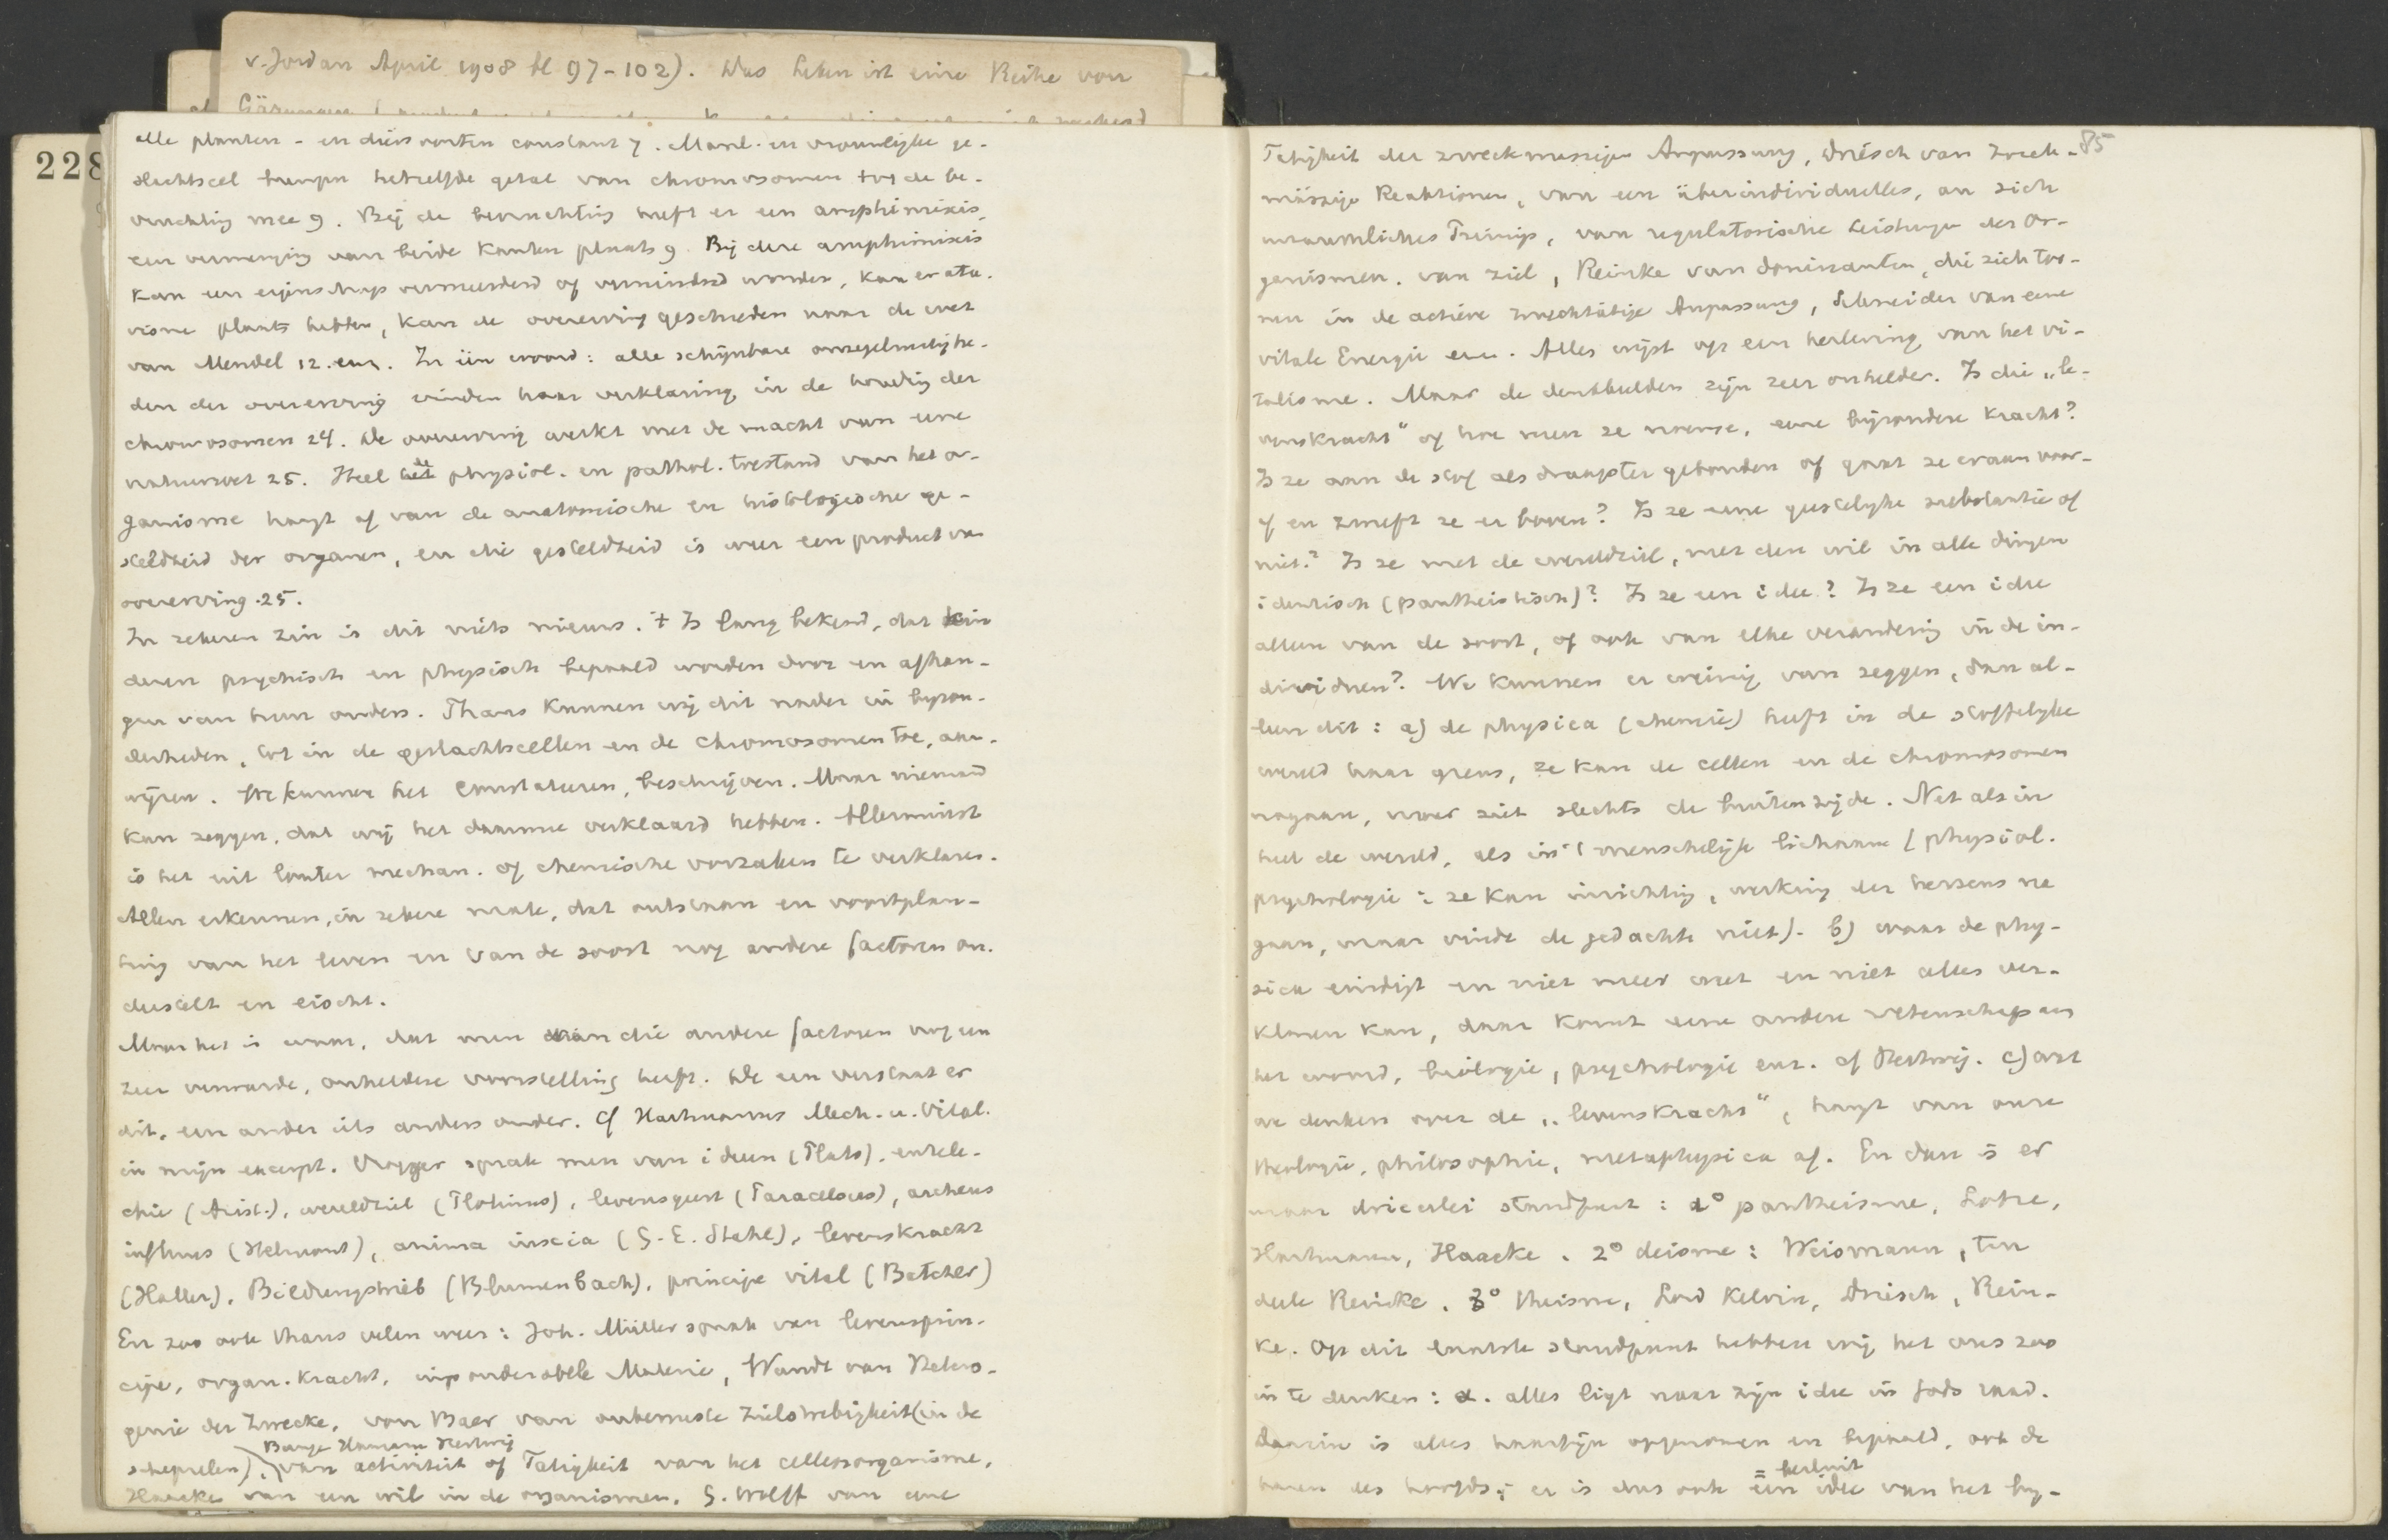 v. Jordan April 1908 bl 97-102). Das Leben ist eine Reihe von
228
alle planten- en diersoorten constant 7. Manl. en vrouwlijke ge-
slachtscel brengen hetzelfde getal van chromosomen tog de be-
vruchting mee 9. Bij de bevruchting heeft er een amphimixis,
een vermenging van beide kanten plaats 9. Bij deze amphimixis
kan een eigenschap vermeerderd of verminderd worden, kan er ata-
visme plaats hebben, kan de overerving geschieden naar de wet
van Mendel 12. enz. In één woord: alle schijnbare onregelmatighe-
den der overerving vinden haar verklaring in de houding der
chromosomen 24. De overerving werkt met de macht van eene
natuurwet 25. Heel de physiol. en pathol. toestand van het or-
ganisme hangt af van de anatomische en histologische ge-
steldheid der organen, en die gesteldheid is weer een product van
overerving. 25.
In zekeren zin is dit niets nieuws. 't Is lang bekend, dat kin
deren psychisch en physisch bepaald worden door en afhan-
gen van hun ouders. Thans kunnen wij dit nader in byzon-
derheden, tot in de geslachtscellen en de chromosomen toe, aan-
wijzen. We kunnen het constateren, beschrijven. Maar niemand
kan zeggen, dat wij het daarmee verklaard hebben. Allerminst
is het uit louter mechan. of chemische oorzaken te verklaren.
Allen erkennen, in zekere mate, dat ontstaan en voortplan-
ting van het leven en van de soort nog andere factoren on-
derstelt en eischt.
Maar het is waar, dat men van die andere factoren nog een
zeer verwarde, onheldere voorstelling heeft. De een verstaat er
dit, een ander iets anders onder. Cf Hartmanns Mech. u. Vital.
in mijn excerpt. Vroeger sprak men van ideen (Plato), entele-
chie (Arist.), wereldziel (Plotinus), levensgeest (Paracelsus), archeus
influus (Helmont), anima inscia (G. E. Stahl), levenskracht
(Haller), Bildungstrieb (Blumenbach), principe vital (Batcher)
En zoo ook thans velen weer: Joh. Müller sprak van levensprin-
cipe, organ. kracht, imponderabele Materie, Wundt van Hetero-
genie der Zwecke, von Baer van onbewuste Zielstrebigkeit (in de
Bunge Hamann Hertwig
schepselen), van activiteit of Tätigkeit van het cellenorganisme,
Haacke van een wil in de organismen, G. Wolff van eene
85
Tätigkeit der zweckmässigen Anpassung, Driesch van zweck-
mässige Reaktionen, van een überindividuelles, an sich
unraumliches Prinzip, van regulatorische Leistungen des Or-
ganismen. van ziel, Reinke van dominanten, die zich too-
nen in de actieve zwecktätige Anpassung, Schneider van eene
vitale Energie enz. Alles wijst op een herleving van het vi-
talisme. Maar de denkbeelden zijn zeer onhelder. Is die „le-
venskracht" of hoe men ze noeme, eene bijzondere kracht?
Is ze aan de stof als draagster gebonden of gaat ze eraan voor-
af en zweeft ze er boven? Is ze eene geestelijke substantie of
niet? Is ze met de wereldziel, met den wil in alle dingen
identisch (pantheistisch)? Is ze een idee? Is ze een idee
alleen van de soort, of ook van elke verandering in de in-
dividuen? We kunnen er weinig van zeggen, dan al-
leen dit: a) de physica (chemie) heeft in de stoffelijke
wereld haar grens, ze kan de cellen en de chromosomen
nagaan, maar ziet slechts de buitenzijde. Net als in
heel de wereld, als in 't menschelijk lichaam (physiol.
psychologie: ze kan inrichting, werking der hersens na
gaan, maar vindt de gedachte niet). b) waar de phy-
sica eindigt en niet meer weet en niet alles ver-
klaren kan, daar komt eene andere wetenschap aan
het woord, biologie, psychologie enz. cf Hertwig. c) wat
we denken over de „levenskracht", hangt van onze
theologie, philosophie, metaphysica af. En dan is er
maar drieerlei standpunt: 1° pantheisme, Lotze,
Hartmann, Haacke. 2° deisme: Weismann, ten
deele Reinke. 3° theisme, Lord Kelvin, Driesch, Rein-
ke. Op dit laatste standpunt hebben wij het ons zoo
in te denken: α. alles ligt naar zijn idee in Gods raad.
Daarin is alles haarfijn opgenomen en bepaald, ook de
= besluit
haren des hoofds; er is dus ook een idee van het by-